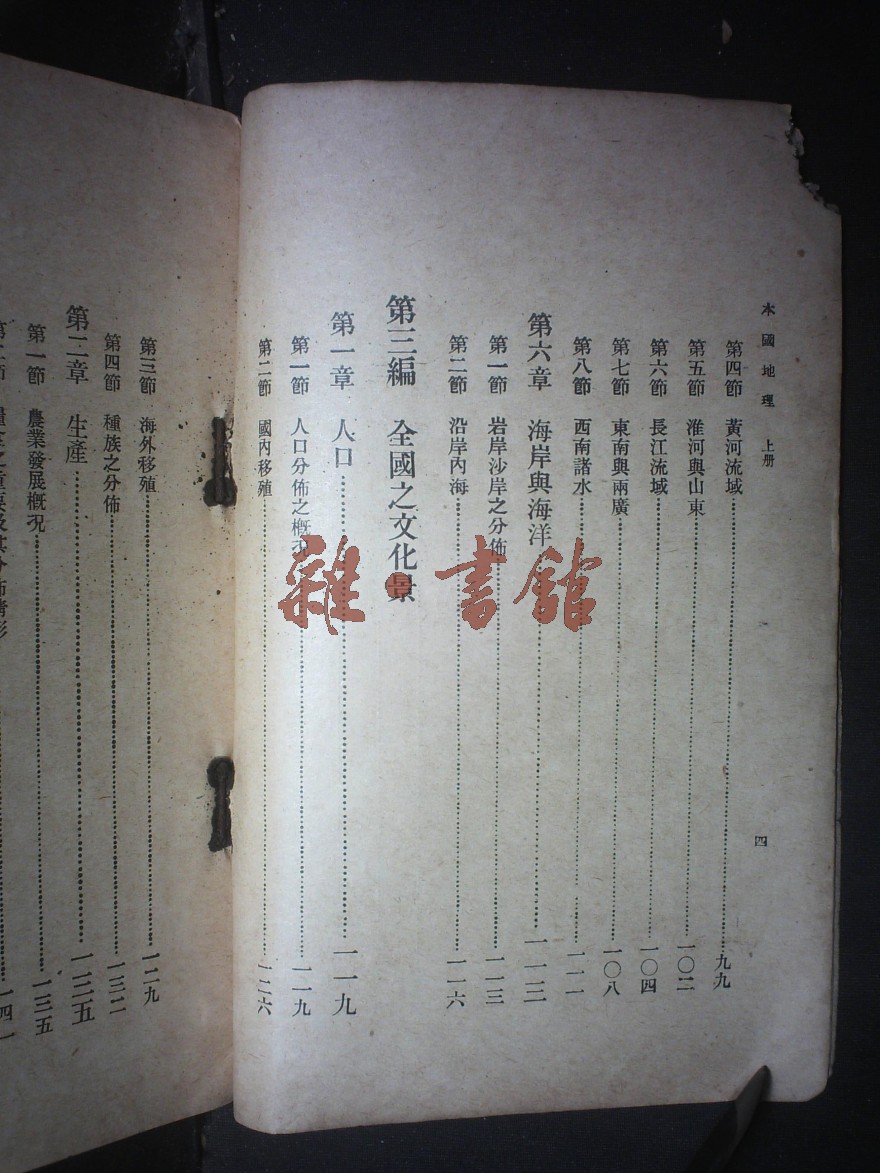 本國地理 上册
四
第四節 黃河流域 九九
第五節 淮河與山東 一〇二
第六節 長江流域 一〇四
第七節 東南與兩廣 一〇八
第八節 西南諸水 一一一
第六章 海岸與海洋 一一三
第一節 岩岸沙岸之分佈 一一三
第二節 沿岸內海 一一六
第三編 全國之文化景
第一章 人口 一一九
第一節 人口分佈之概况 一一九
第二節 國內移殖 一二六
第三節 海外移殖 一二九
第四節 種族之分佈 一三二
第二章 生產 一三五
第一節 農業發展概况 一三五
雜書館